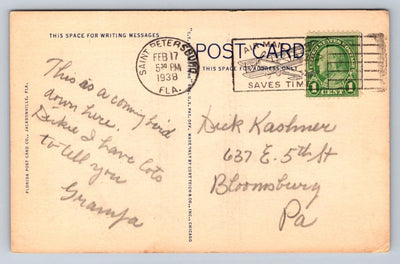 THIS SPACE FOR WRITING MESSAGES
POST CARD
THIS SPACE FOR ADDRESS ONLY
SAINT PETERSBURG,
FEB 17
5 30 PM
1938
FLA.
AIR MAIL
SAVES TIME
1 CENT 1
This is a coming bird
down here.
Dickie I have lots
to tell you
Grampa
Dick Kashner
637 E. 5th St
Bloomsburg
Pa
FLORIDA POST CARD CO., JACKSONVILLE, FLA.